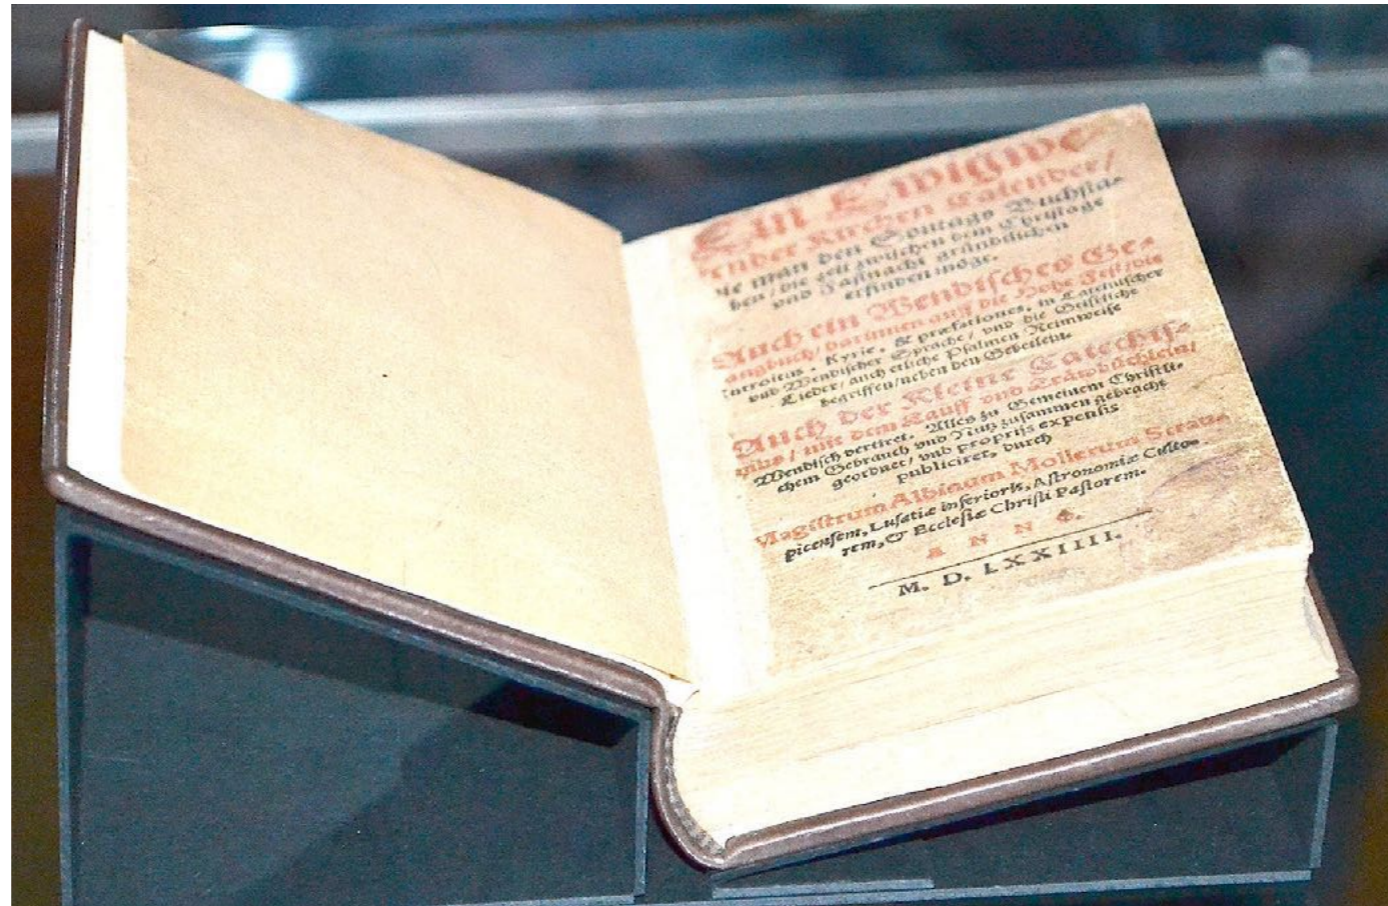 Ein Ewigwe
render Kirchen Calender/
wie man den Sontags Buchsta-
ben/ die zeit zwischen dem Christage
vnd Fastnacht gründtlichen
erfinden möge.
Auch ein Wendisches Ge-
angbuch/ darinnen auff die Hohe Fest/die
Introitus, Kyrie, & præfationes, in Lateinischer
vnd Wendischer Sprache/ vnd die Geistliche
Lieder/ auch etliche Psalmen Reimweise
begriffen/neben den Gebetlein.
Auch der Kleine Catechis-
mus/ mit dem Tauff vnd Trawbüchlein/
Wendisch vertiret. Alles zu Gemeinem Christli-
chem Gebrauch vnd Nutz zusammen gebracht
geordnet/ vnd proprijs expensis
publiciret, durch
Magistrum Albinum Mollerum Strau-
picensem, Lusatiæ inferioris, Astronomiæ Culto-
rem, & Ecclesiæ Christi Pastorem.
A N N O.
M. D. LXXIIII.